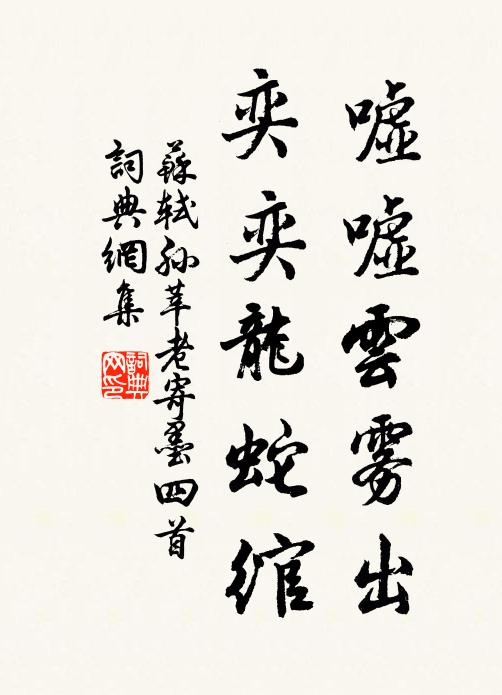 噓噓雲雾出
奕奕龍蛇綰
蘇軾孫莘老寄墨四首
詞典網集
詞典網印